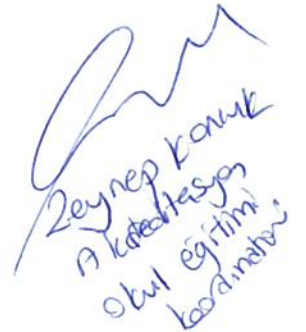 Zeynep Konuk
Akreditasyon
okul eğitimi
koordinatörü